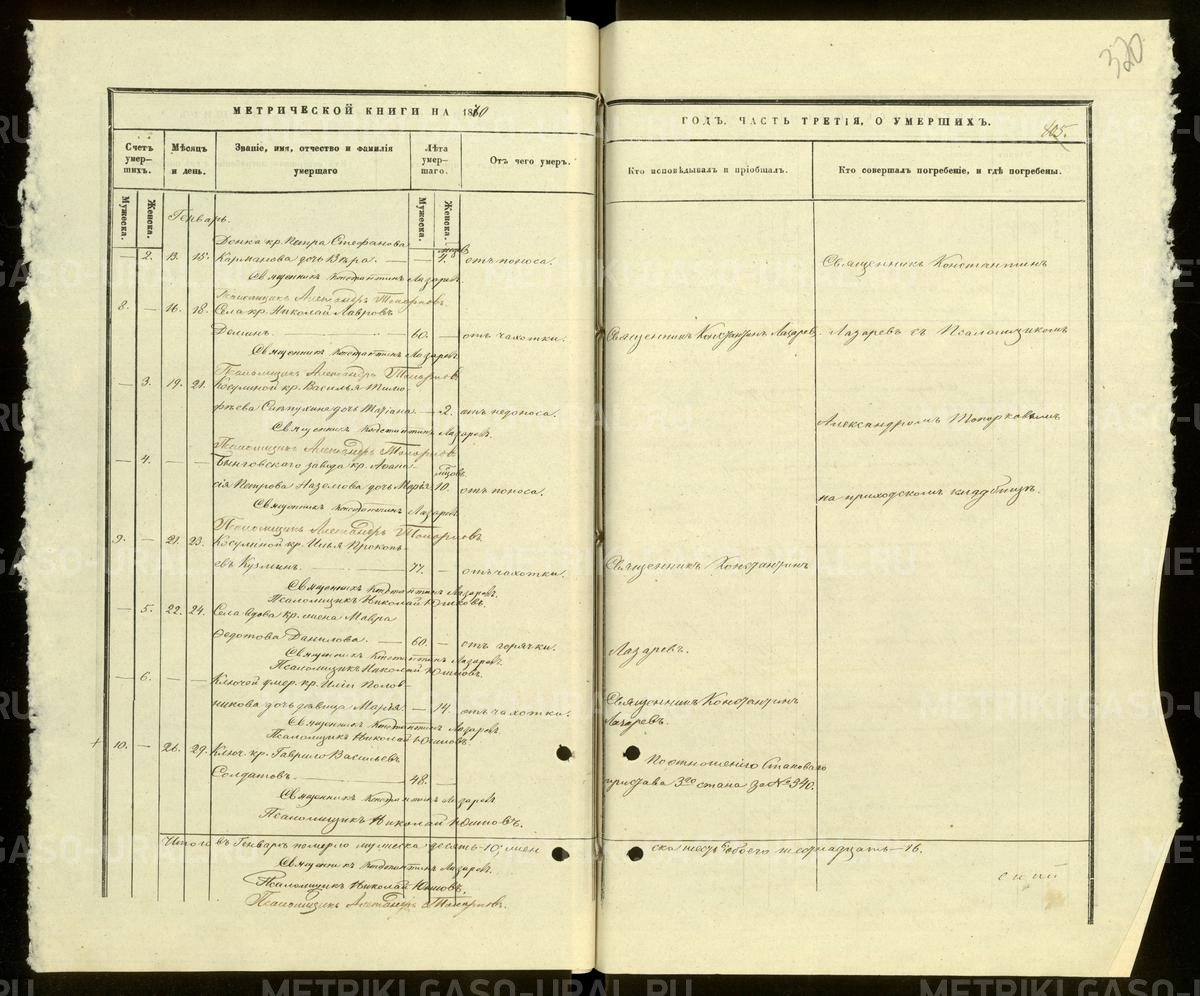 320
МЕТРИЧЕСКОЙ КНИГИ НА 1870
ГОДЪ, ЧАСТЬ ТРЕТІЯ, О УМЕРШИХЪ.
405.
Счетъ умер-шихъ.
Мѣсяцъ и день.
Званіе, имя, отчество и фамилія умершаго
Лѣта умер-шаго.
Отъ чего умеръ.
Кто исповѣдывалъ и пріобщалъ.
Кто совершалъ погребеніе, и гдѣ погребены.
Мужеска.
Женска.
Мужеска.
Женска.
Генварь.
кр. Петра Стефанова
— 2. 13. 15. Карманова дочь Вѣра. — — 4. отъ поноса.
Священникъ Константинъ Лазаревъ.
Псаломщикъ Александръ Топорковъ.
8. — 16. 18. Села кр. Николай Лавровъ
Деминъ. — 60. — отъ чахотки.
Священникъ Константинъ Лазаревъ
Псаломщикъ Александръ Топорковъ
— 3. 19. 21. Косулиной кр. Василья Тимо-
фѣева дочь — 2. отъ недоноса.
Священникъ Константинъ Лазаревъ.
Псаломщикъ Александръ Топорковъ
— 4. — — Быньговскаго завода кр. Аѳана-
сія Петрова Наземова дочь Марья 10. отъ поноса.
мѣсяцовъ
Священникъ Константинъ Лазаревъ
Псаломщикъ Александръ Топорковъ
9. — 21. 23. Косулиной кр. Илья Прокопь-
евъ Кузминъ. — 77. — отъ чахотки.
Священникъ Константинъ Лазаревъ.
Псаломщикъ Николай Юшковъ.
— 5. 22. 24. Села вдова кр. жена Мавра
Ѳедотова Данилова. — 60. — отъ горячки.
Священникъ Константинъ Лазаревъ.
Псаломщикъ Николай Юшковъ.
— 6. — — Ключей умер. кр. Иліи Полов-
никова дочь дѣвица Марья. — 14. отъ чахотки.
Священникъ Константинъ Лазаревъ.
Псаломщикъ Николай Юшковъ.
+ 10. — 26. 29. Ключ. кр. Гаврило Васильевъ
Солдатовъ. — 48. —
Священникъ Константинъ Лазаревъ
Псаломщикъ Николай Юшковъ.
Итого въ Генварѣ померло мужеска десять-10, жен
Священникъ Константинъ Лазаревъ.
Псаломщикъ Николай Юшковъ.
Псаломщикъ Александръ Топорковъ.
Священникъ Константинъ Лазаревъ,
Священникъ Константинъ
Лазаревъ.
Священникъ Константинъ
Лазаревъ.
По отношенію Становаго
пристава 3го стана за № 340.
ска шесть 6, обоего шестнадцать—16.
Священникъ Константинъ
Лазаревъ съ Псаломщикомъ
Александромъ Топорковымъ
на приходскомъ кладбищѣ.